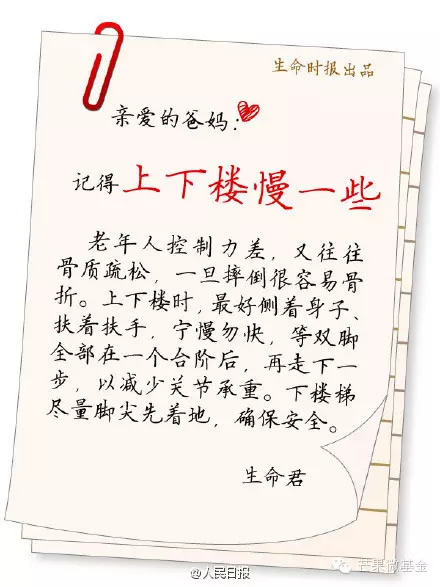 生命时报出品
亲爱的爸妈：
记得上下楼慢一些
老年人控制力差，又往往
骨质疏松，一旦摔倒很容易骨
折。上下楼时，最好侧着身子、
扶着扶手，宁慢勿快，等双脚
全部在一个台阶后，再走下一
步，以减少关节承重。下楼梯
尽量脚尖先着地，确保安全。
生命君
@人民日报
芒果微基金